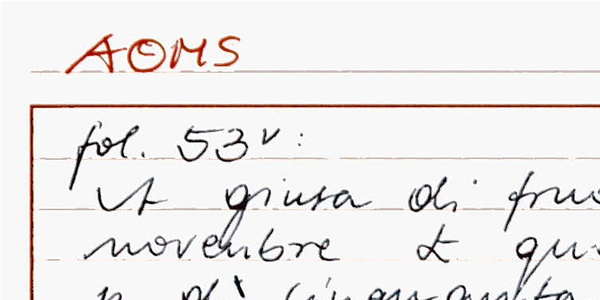 AOMS
fol. 53v:
giusa di
novembre qu
di cinquanta